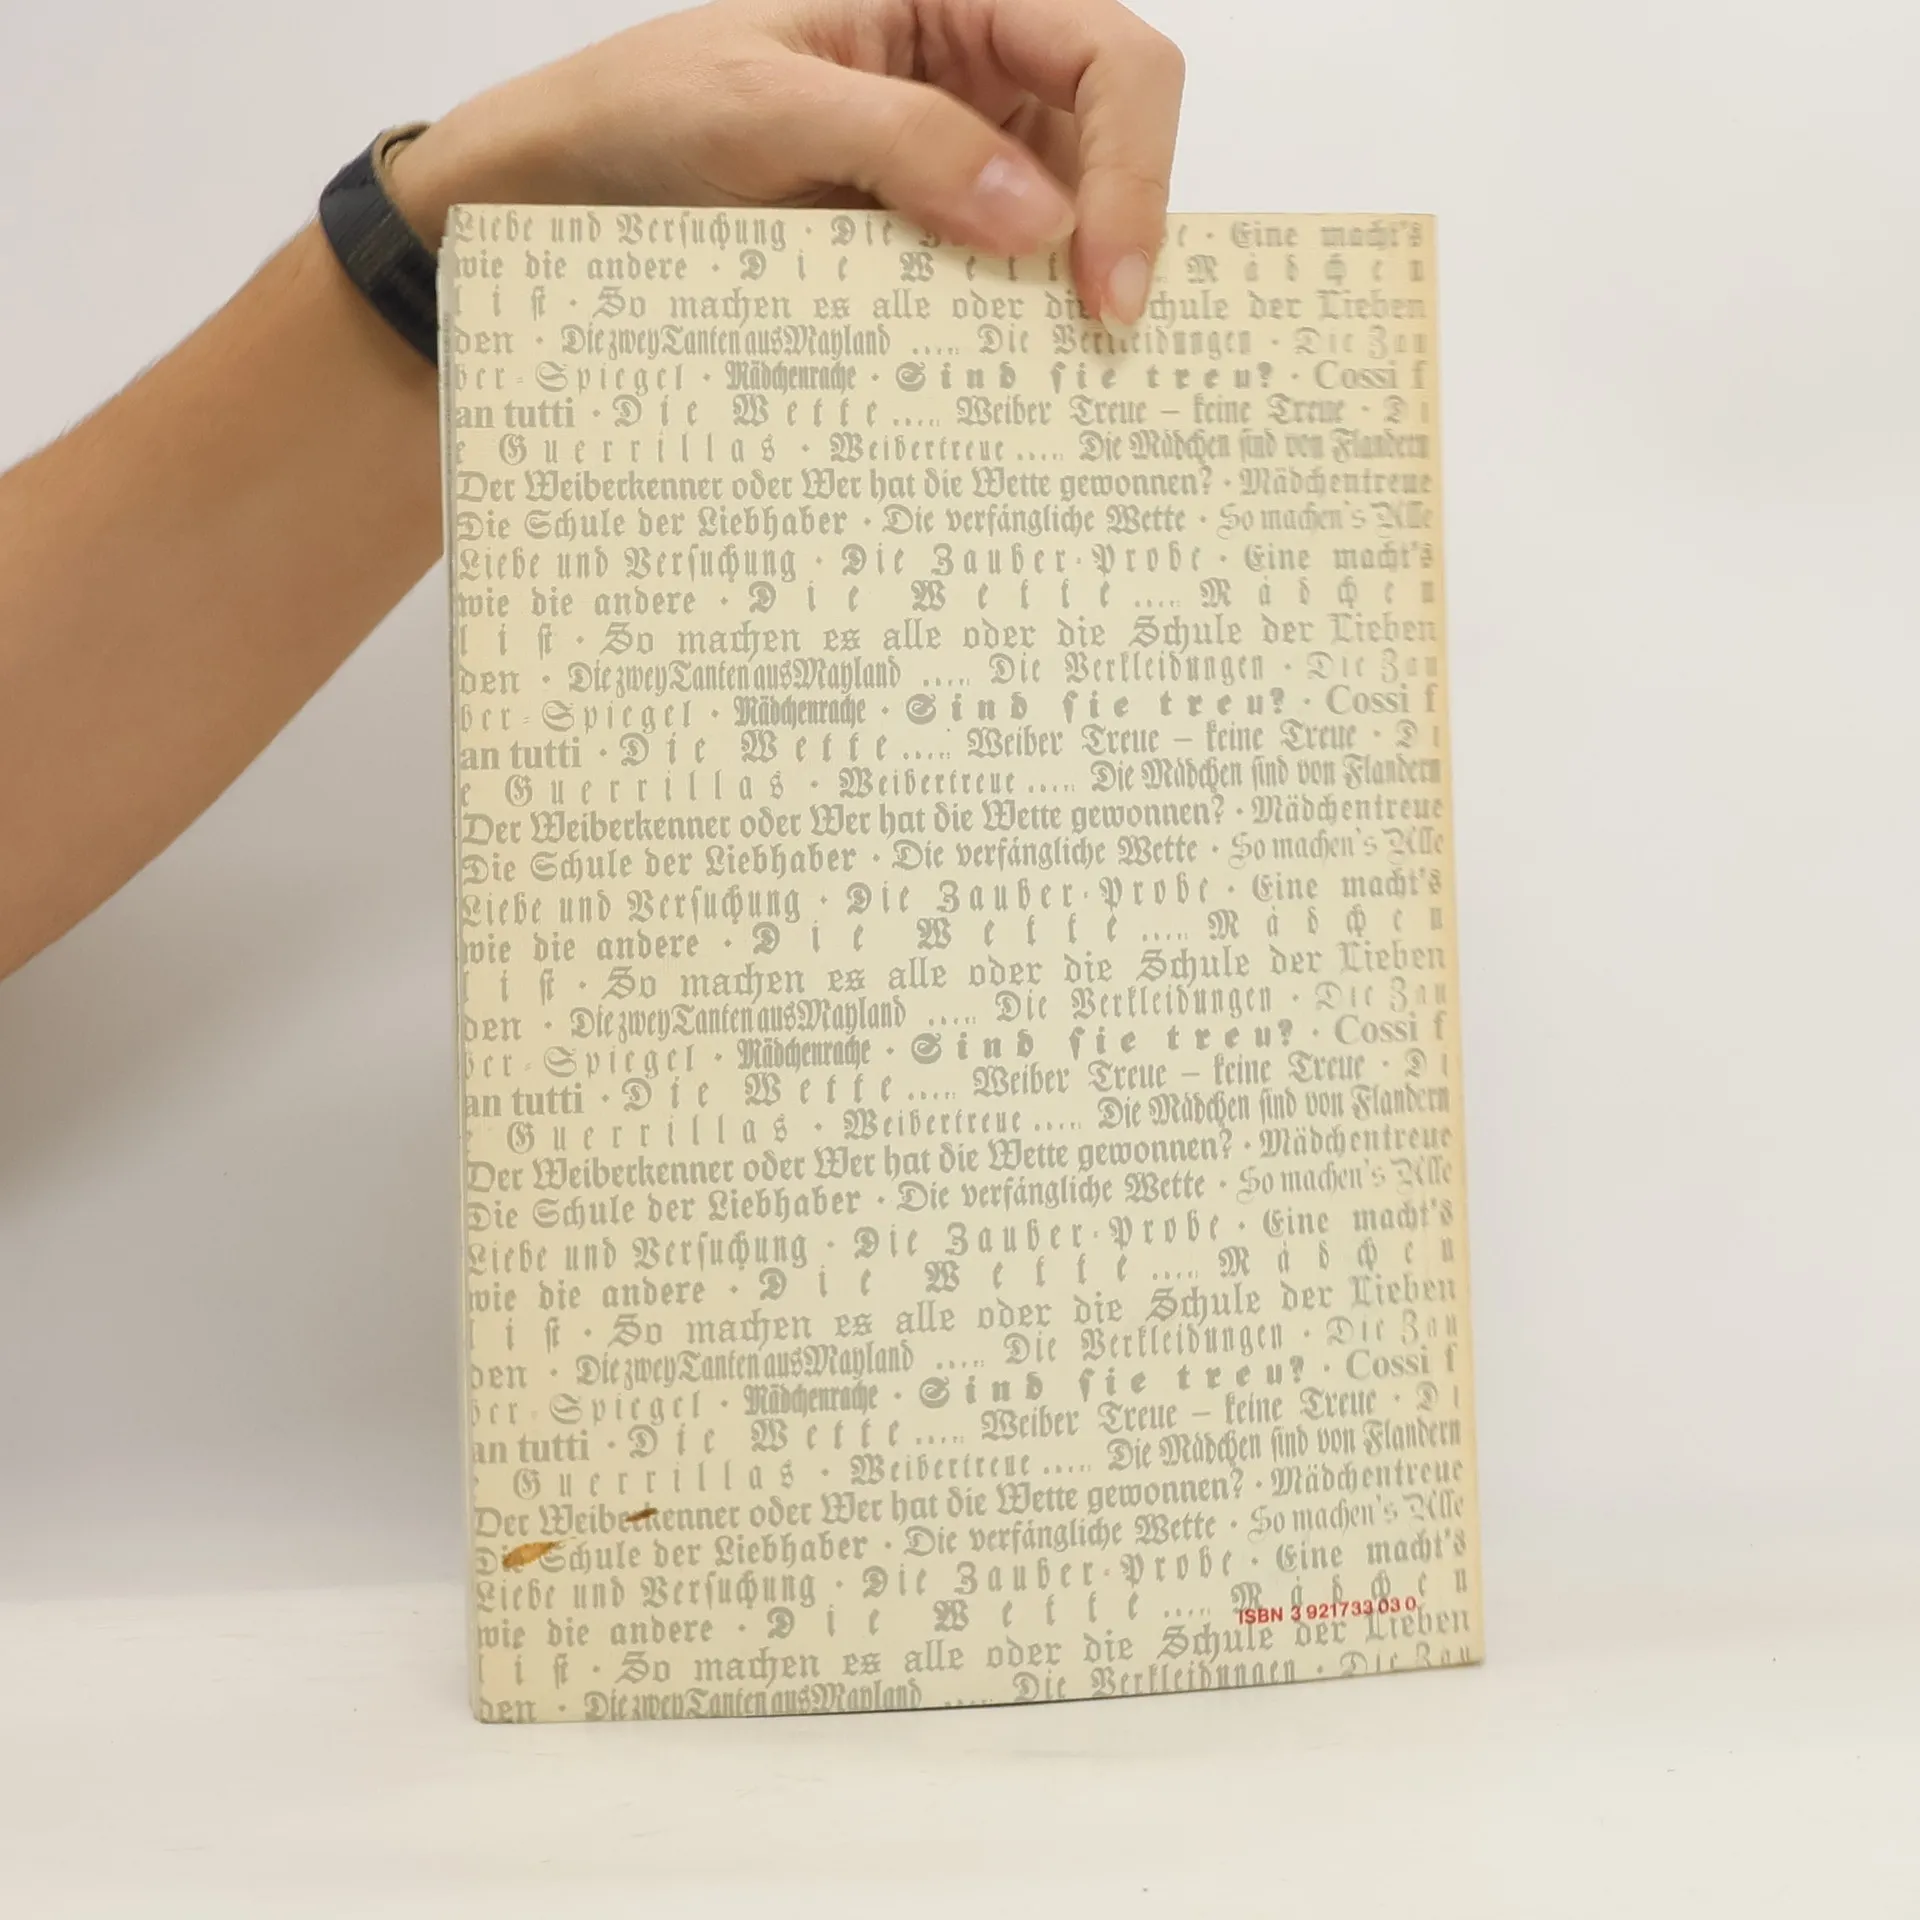 Liebe und Versuchung · Die Eine macht's
wie die andere · Die Wet Mädchen
list · So machen es alle oder die Schule der Lieben
den · Die zwey Tanten aus Mayland .... Die Verkleidungen · Die Zau
ber-Spiegel · Mädchenrache · Sind sie treu? · Cossi f
an tutti · Die Wette .... Weiber Treue – keine Treue · Di
e Guerrillas · Weibertreue .... Die Mädchen sind von Flandern
Der Weiberkenner oder Wer hat die Wette gewonnen? · Mädchentreue
Die Schule der Liebhaber · Die verfängliche Wette · So machen's Alle
Liebe und Versuchung · Die Zauber-Probe · Eine macht's
wie die andere · Die Wette .... Mädchen
list · So machen es alle oder die Schule der Lieben
den · Die zwey Tanten aus Mayland .... Die Verkleidungen · Die Zau
ber-Spiegel · Mädchenrache · Sind sie treu? · Cossi f
an tutti · Die Wette .... Weiber Treue – keine Treue · Di
e Guerrillas · Weibertreue .... Die Mädchen sind von Flandern
Der Weiberkenner oder Wer hat die Wette gewonnen? · Mädchentreue
Die Schule der Liebhaber · Die verfängliche Wette · So machen's Alle
Liebe und Versuchung · Die Zauber-Probe · Eine macht's
wie die andere · Die Wette .... Mädchen
list · So machen es alle oder die Schule der Lieben
den · Die zwey Tanten aus Mayland .... Die Verkleidungen · Die Zau
ber-Spiegel · Mädchenrache · Sind sie treu? · Cossi f
an tutti · Die Wette .... Weiber Treue – keine Treue · Di
e Guerrillas · Weibertreue .... Die Mädchen sind von Flandern
Der Weiberkenner oder Wer hat die Wette gewonnen? · Mädchentreue
Die Schule der Liebhaber · Die verfängliche Wette · So machen's Alle
Liebe und Versuchung · Die Zauber-Probe · Eine macht's
wie die andere · Die Wette .... Mädchen
list · So machen es alle oder die Schule der Lieben
den · Die zwey Tanten aus Mayland .... Die Verkleidungen · Die Zau
ber-Spiegel · Mädchenrache · Sind sie treu? · Cossi f
an tutti · Die Wette .... Weiber Treue – keine Treue · Di
e Guerrillas · Weibertreue .... Die Mädchen sind von Flandern
Der Weiberkenner oder Wer hat die Wette gewonnen? · Mädchentreue
Die Schule der Liebhaber · Die verfängliche Wette · So machen's Alle
Liebe und Versuchung · Die Zauber-Probe · Eine macht's
wie die andere · Die Wette .... Mädchen
ISBN 3 921733 03 0
list · So machen es alle oder die Schule der Lieben
den · Die zwey Tanten aus Mayland .... Die Verkleidungen · Die Zau